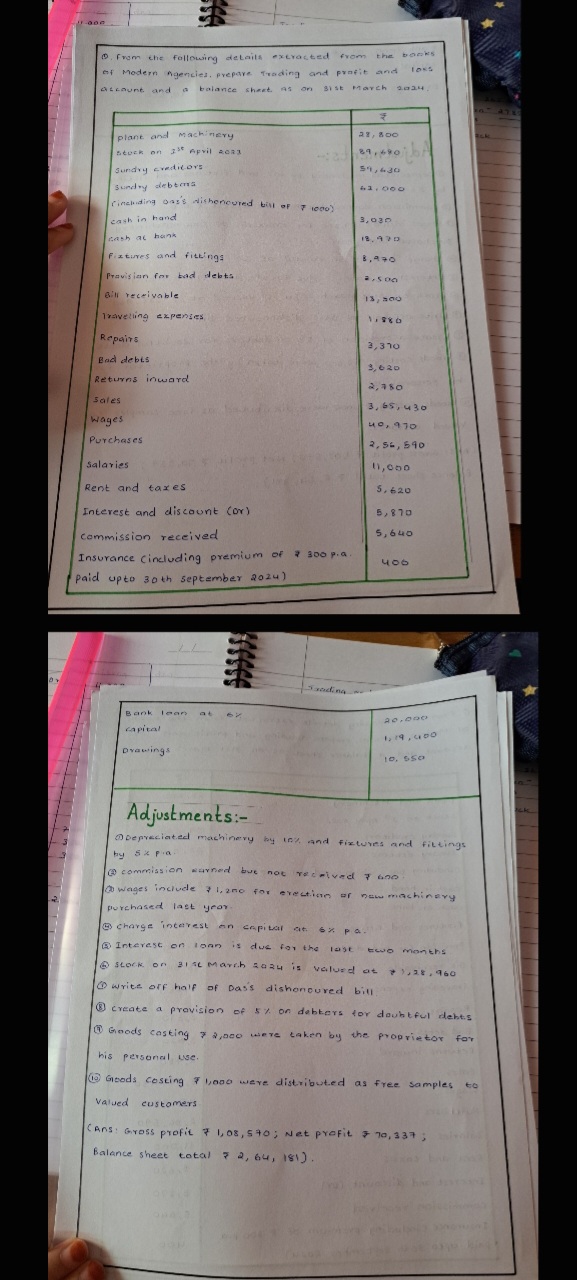 11,000
① From the following details extracted from the books
of Modern Agencies, prepare Trading and profit and loss
account and a balance sheet as on 31st March 2024.
₹
Plant and Machinery 28,800
Stock on 1st April 2023 89,680
Sundry creditors 59,630
Sundry debtors 62,000
(including Das's dishonoured bill of ₹ 1000)
cash in hand 3,030
cash at bank 18,970
Fixtures and fittings 8,970
Provision for bad debts 2,500
Bill receivable 13,800
Travelling expenses 1,880
Repairs 3,370
Bad debts 3,620
Returns inward 2,780
Sales 3,65,430
Wages 40,970
Purchases 2,56,590
Salaries 11,000
Rent and taxes 5,620
Interest and discount (Dr) 5,870
commission received 5,640
Insurance (including premium of ₹ 300 p.a. 400
paid upto 30th September 2024)
Bank loan at 6% 20,000
capital 1,19,400
Drawings 10,550
Adjustments:-
① Depreciated machinery by 10% and fixtures and fittings
by 5% p.a.
② commission earned but not received ₹ 600
③ Wages include ₹ 1,200 for erection of new machinery
purchased last year.
④ Charge interest on capital at 6% p.a.
⑤ Interest on loan is due for the last two months
⑥ Stock on 31st March 2024 is valued at ₹ 1,28,960
⑦ Write off half of Das's dishonoured bill
⑧ Create a provision of 5% on debtors for doubtful debts
⑨ Goods costing ₹ 2,000 were taken by the proprietor for
his personal use.
⑩ Goods costing ₹ 1,000 were distributed as free samples to
valued customers
(Ans: Gross profit ₹ 1,08,570; Net profit ₹ 70,337;
Balance sheet total ₹ 2,64,181).